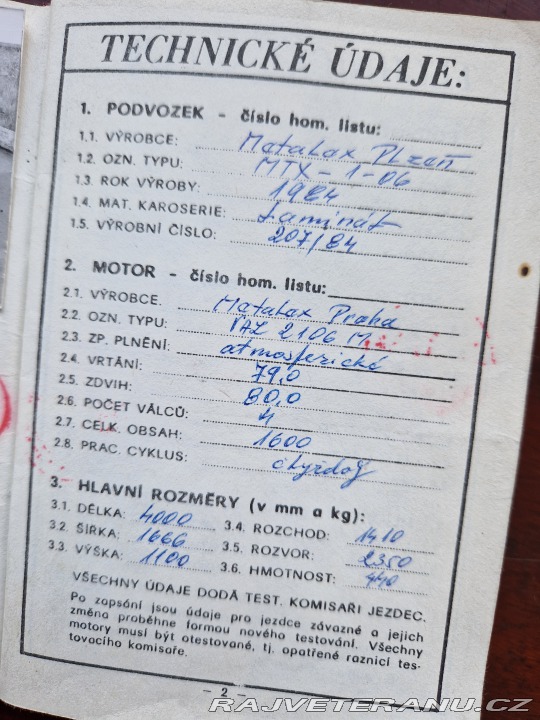 TECHNICKÉ ÚDAJE:
1. PODVOZEK - číslo hom. listu:
1.1. VÝROBCE: Metalex Plzeň
1.2. OZN. TYPU: MTX-1-06
1.3. ROK VÝROBY: 1984
1.4. MAT. KAROSERIE: Laminát
1.5. VÝROBNÍ ČÍSLO: 207/84
2. MOTOR - číslo hom. listu:
2.1. VÝROBCE. Metalex Praha
2.2. OZN. TYPU: VAZ 2106 M
2.3. ZP. PLNĚNÍ: atmosferické
2.4. VRTÁNÍ: 79,0
2.5. ZDVIH: 80,0
2.6. POČET VÁLCŮ: 4
2.7. CELK. OBSAH: 1600
2.8. PRAC. CYKLUS: čtyřdob
3. HLAVNÍ ROZMĚRY (v mm a kg):
3.1. DÉLKA: 4000 3.4. ROZCHOD: 1410
3.2. ŠÍRKA: 1666 3.5. ROZVOR: 2350
3.3. VÝŠKA: 1100 3.6. HMOTNOST: 440
VŠECHNY ÚDAJE DODÁ TEST. KOMISAŘI JEZDEC.
Po zapsání jsou údaje pro jezdce závazné a jejich
změna proběhne formou nového testování. Všechny
motory musí být otestované, tj. opatřené raznicí tes-
tovacího komisaře.
- 2 -
RAJVETERANU.CZ